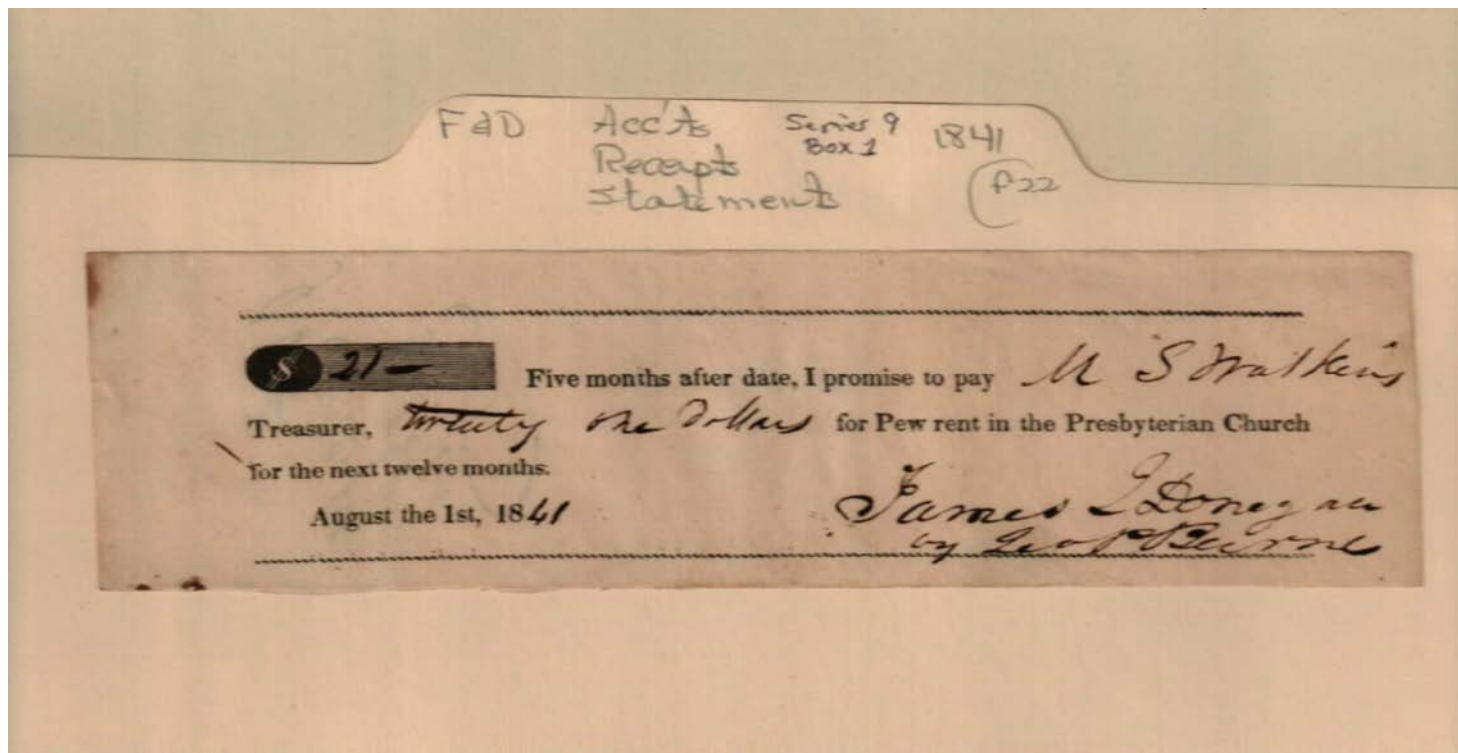 F&D Acc'ts Series 9 1841
Receipts Box 1
Statements f22
$ 21—
Five months after date, I promise to pay M S Watkins
Treasurer, twenty one Dollars for Pew rent in the Presbyterian Church
for the next twelve months.
August the 1st, 1841 James J Donegan
by Geo P Beirne